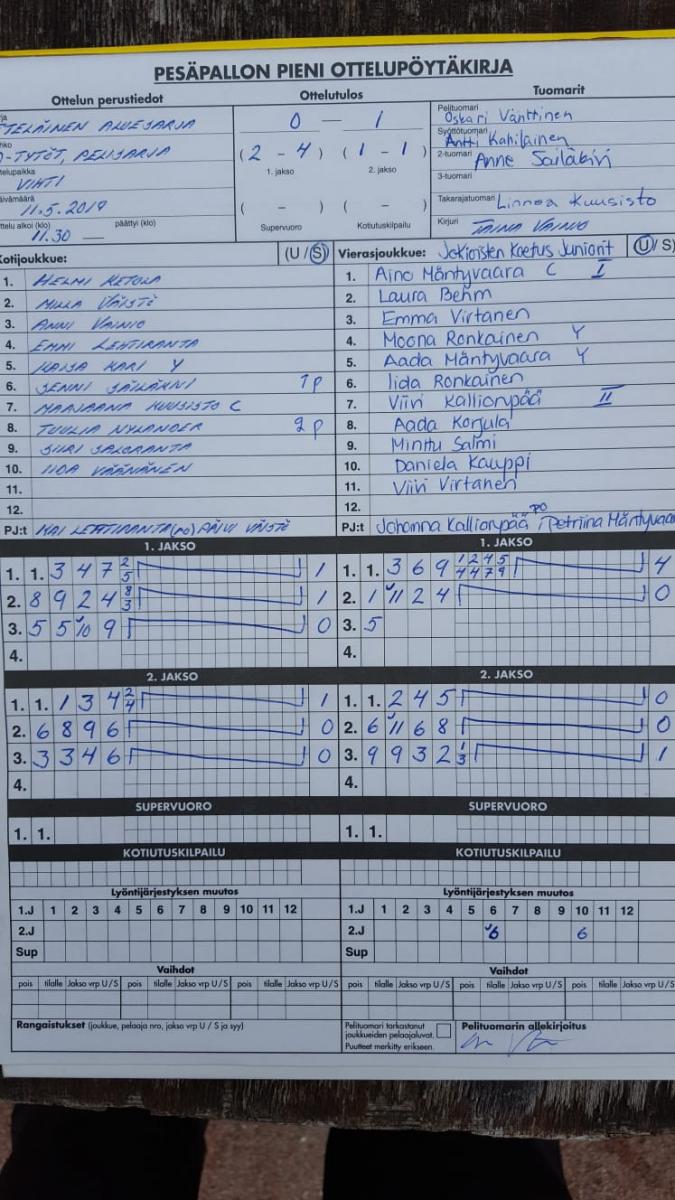 PESÄPALLON PIENI OTTELUPÖYTÄKIRJA
Ottelun perustiedot
TELÄINEN ALUESARJA
-TYTÖT, PELISARJA
VIHTI
11.5.2019
ottelu alkoi (klo) päättyi (klo)
11.30 —
Ottelutulos
0 — 1
(2 - 4) (1 - 1)
1. jakso 2. jakso
( - ) ( - )
Supervuoro Kotiutuskilpailu
Tuomarit
Pelituomari
Oskari Vänttinen
Syöttötuomari
Antti Kahilainen
2-tuomari Anne Sailakivi
3-tuomari
Takarajatuomari Linnea Kuusisto
Kirjuri TAINA VAINIO
Kotijoukkue: (U / S)
1. HELMI KETOLA
2. MILLA VÄISTÖ
3. ANNI VAINIO
4. EMMI LEHTIRANTA
5. KAISA KARI Y
6. JENNI 1P
7. MARJAANA KUUSISTO C
8. TUULIA NYLANDER 2P
9. SIIRI SALORANTA
10. IIDA VÄÄNÄNEN
11.
12.
PJ:t KAI LEHTIRANTA (PO) PÄIVI VÄISTÖ
Vierasjoukkue: Jokioisten Koetus Juniorit (U / S)
1. Aino Mäntyvaara C I
2. Laura Behm
3. Emma Virtanen
4. Moona Ronkainen Y
5. Aada Mäntyvaara Y
6. Iida Ronkainen
7. Viivi Kallionpää II
8. Aada Korjula
9. Minttu Salmi
10. Daniela Kauppi
11. Viivi Virtanen
12. PO
PJ:t Johanna Kallionpää, Petriina Mäntyvaar
1. JAKSO
1. 1. 3 4 7 2/5 1
2. 8 9 2 4 8/3 1
3. 5 5 10 9 0
4.
1. JAKSO
1. 1. 3 6 9 1/4 2/4 4/7 5/9 4
2. 1 11 2 4 0
3. 5
4.
2. JAKSO
1. 1. 1 3 4 2/4 1
2. 6 8 9 6 0
3. 3 3 4 6 0
4.
2. JAKSO
1. 1. 2 4 5 0
2. 6 11 6 8 0
3. 9 9 3 2 1/3 1
4.
SUPERVUORO
1. 1.
SUPERVUORO
1. 1.
KOTIUTUSKILPAILU
KOTIUTUSKILPAILU
Lyöntijärjestyksen muutos
1.J 1 2 3 4 5 6 7 8 9 10 11 12
2.J
Sup
Lyöntijärjestyksen muutos
1.J 1 2 3 4 5 6 7 8 9 10 11 12
2.J 6 6
Sup
Vaihdot
pois tilalle Jakso vrp U / S pois tilalle Jakso vrp U / S pois tilalle Jakso vrp U / S
Vaihdot
pois tilalle Jakso vrp U / S pois tilalle Jakso vrp U / S pois tilalle Jakso vrp U / S
Rangaistukset (joukkue, pelaaja nro, jakso vrp U / S ja syy)
Pelituomari tarkastanut
joukkueiden pelaajaluvat.
Puutteet merkitty erikseen.
Pelituomarin allekirjoitus